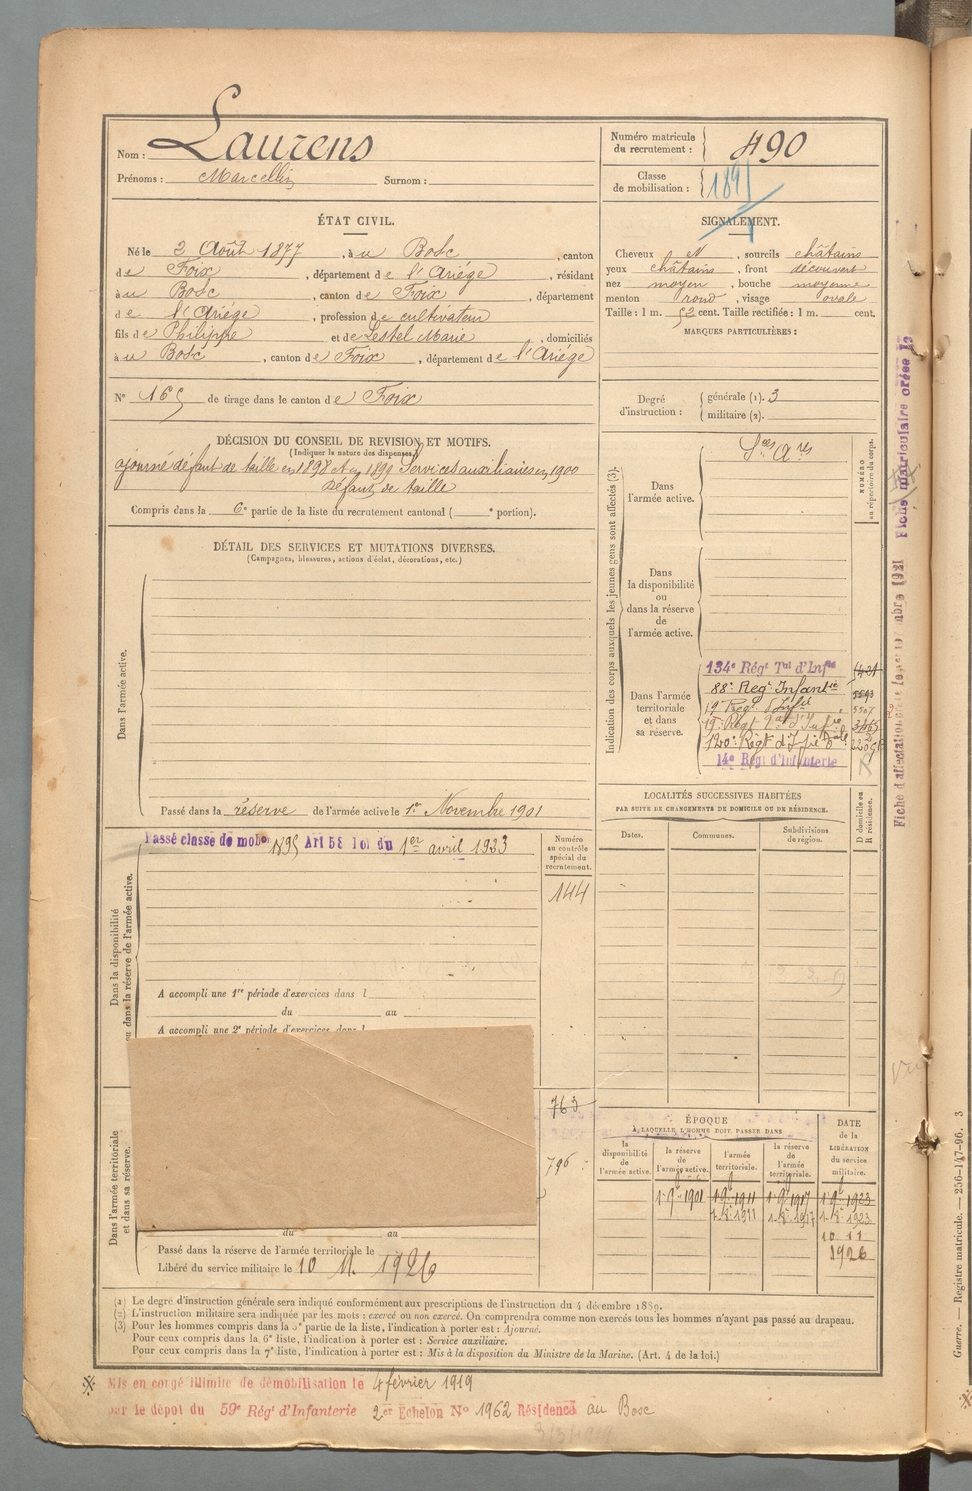 Nom : Laurens
Prénoms : Marcellin Surnom :
Numéro matricule du recrutement : 490
Classe de mobilisation :
ÉTAT CIVIL.
Né le 2 Août 1877, à u Bosc, canton
de Foix, département de l'Ariége, résidant
à u Bosc, canton de Foix, département
de l'Ariége, profession de cultivateur
fils de Philippe et de Lestel Marie, domiciliés
à u Bosc, canton de Foix, département de l'Ariége
SIGNALEMENT.
Cheveux et, sourcils châtains
yeux châtains, front découvert
nez moyen, bouche moyenne
menton rond, visage ovale
Taille : 1 m. 52 cent. Taille rectifiée : 1 m. cent.
MARQUES PARTICULIÈRES :
N° 165 de tirage dans le canton de Foix
Degré d'instruction : générale (1). 3
militaire (2).
DÉCISION DU CONSEIL DE REVISION ET MOTIFS.
(Indiquer la nature des dispenses.)
ajourné défaut de taille en 1898 et en 1899 Services auxiliaires en 1900
défaut de taille
Compris dans la 6e partie de la liste du recrutement cantonal ( e portion).
DÉTAIL DES SERVICES ET MUTATIONS DIVERSES.
(Campagnes, blessures, actions d'éclat, décorations, etc.)
Dans l'armée active.
Passé dans la réserve de l'armée active le 1er Novembre 1901
Indication des corps auxquels les jeunes gens sont affectés (3).
NUMÉRO
au répertoire du corps.
Dans
l'armée active.
Dans
la disponibilité
ou
dans la réserve
de
l'armée active.
Dans l'armée
territoriale
et dans
sa réserve.
134e Régt Tal d'Infie
88e Regt Infantie
120e Régt d'Infie
14e Régt d'Infanterie
Passé classe de mobon 1895 Art 58 loi du 1er avril 1923
Numéro
au contrôle
spécial du
recrutement.
144
Dans la disponibilité
ou dans la réserve de l'armée active.
A accompli une 1re période d'exercices dans l
du au
A accompli une 2e période d'exercices dans l
LOCALITÉS SUCCESSIVES HABITÉES
PAR SUITE DE CHANGEMENTS DE DOMICILE OU DE RÉSIDENCE.
D domicile ou
R résidence.
Dates. Communes. Subdivisions de région.
763
796
Dans l'armée territoriale
et dans sa réserve.
du au
Passé dans la réserve de l'armée territoriale le
Libéré du service militaire le 10 N. 1926
ÉPOQUE
À LAQUELLE L'HOMME DOIT PASSER DANS
la disponibilité de l'armée active.
la réserve de l'armée active.
l'armée territoriale.
la réserve de l'armée territoriale.
DATE de la LIBÉRATION du service militaire.
1 9e 1901 1 9e 1911 1 9e 1917 1 9e 1923
1 8e 1911 1 8e 1917 1 8e 1923
10 11
1926
(1) Le degré d'instruction générale sera indiqué conformément aux prescriptions de l'instruction du 4 décembre 1889.
(2) L'instruction militaire sera indiquée par les mots : exercé ou non exercé. On comprendra comme non exercés tous les hommes n'ayant pas passé au drapeau.
(3) Pour les hommes compris dans la 5e partie de la liste, l'indication à porter est : Ajourné.
Pour ceux compris dans la 6e liste, l'indication à porter est : Service auxiliaire.
Pour ceux compris dans la 7e liste, l'indication à porter est : Mis à la disposition du Ministre de la Marine. (Art. 4 de la loi.)
Mis en congé illimité de démobilisation le 4 février 1919
par le dépôt du 59e Régt d'Infanterie 2er Echelon N° 1962 Résidence au Bosc
Fiche matriculaire créée le
Guerre. — Registre matricule. — 256-147-96. 3